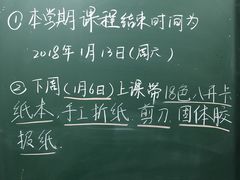 ①本学期课程结束时间为
2018年1月13日(周六)
②下周(1月6日)上课带18色八开卡
纸本.手工折纸.剪刀.固体胶
报纸.